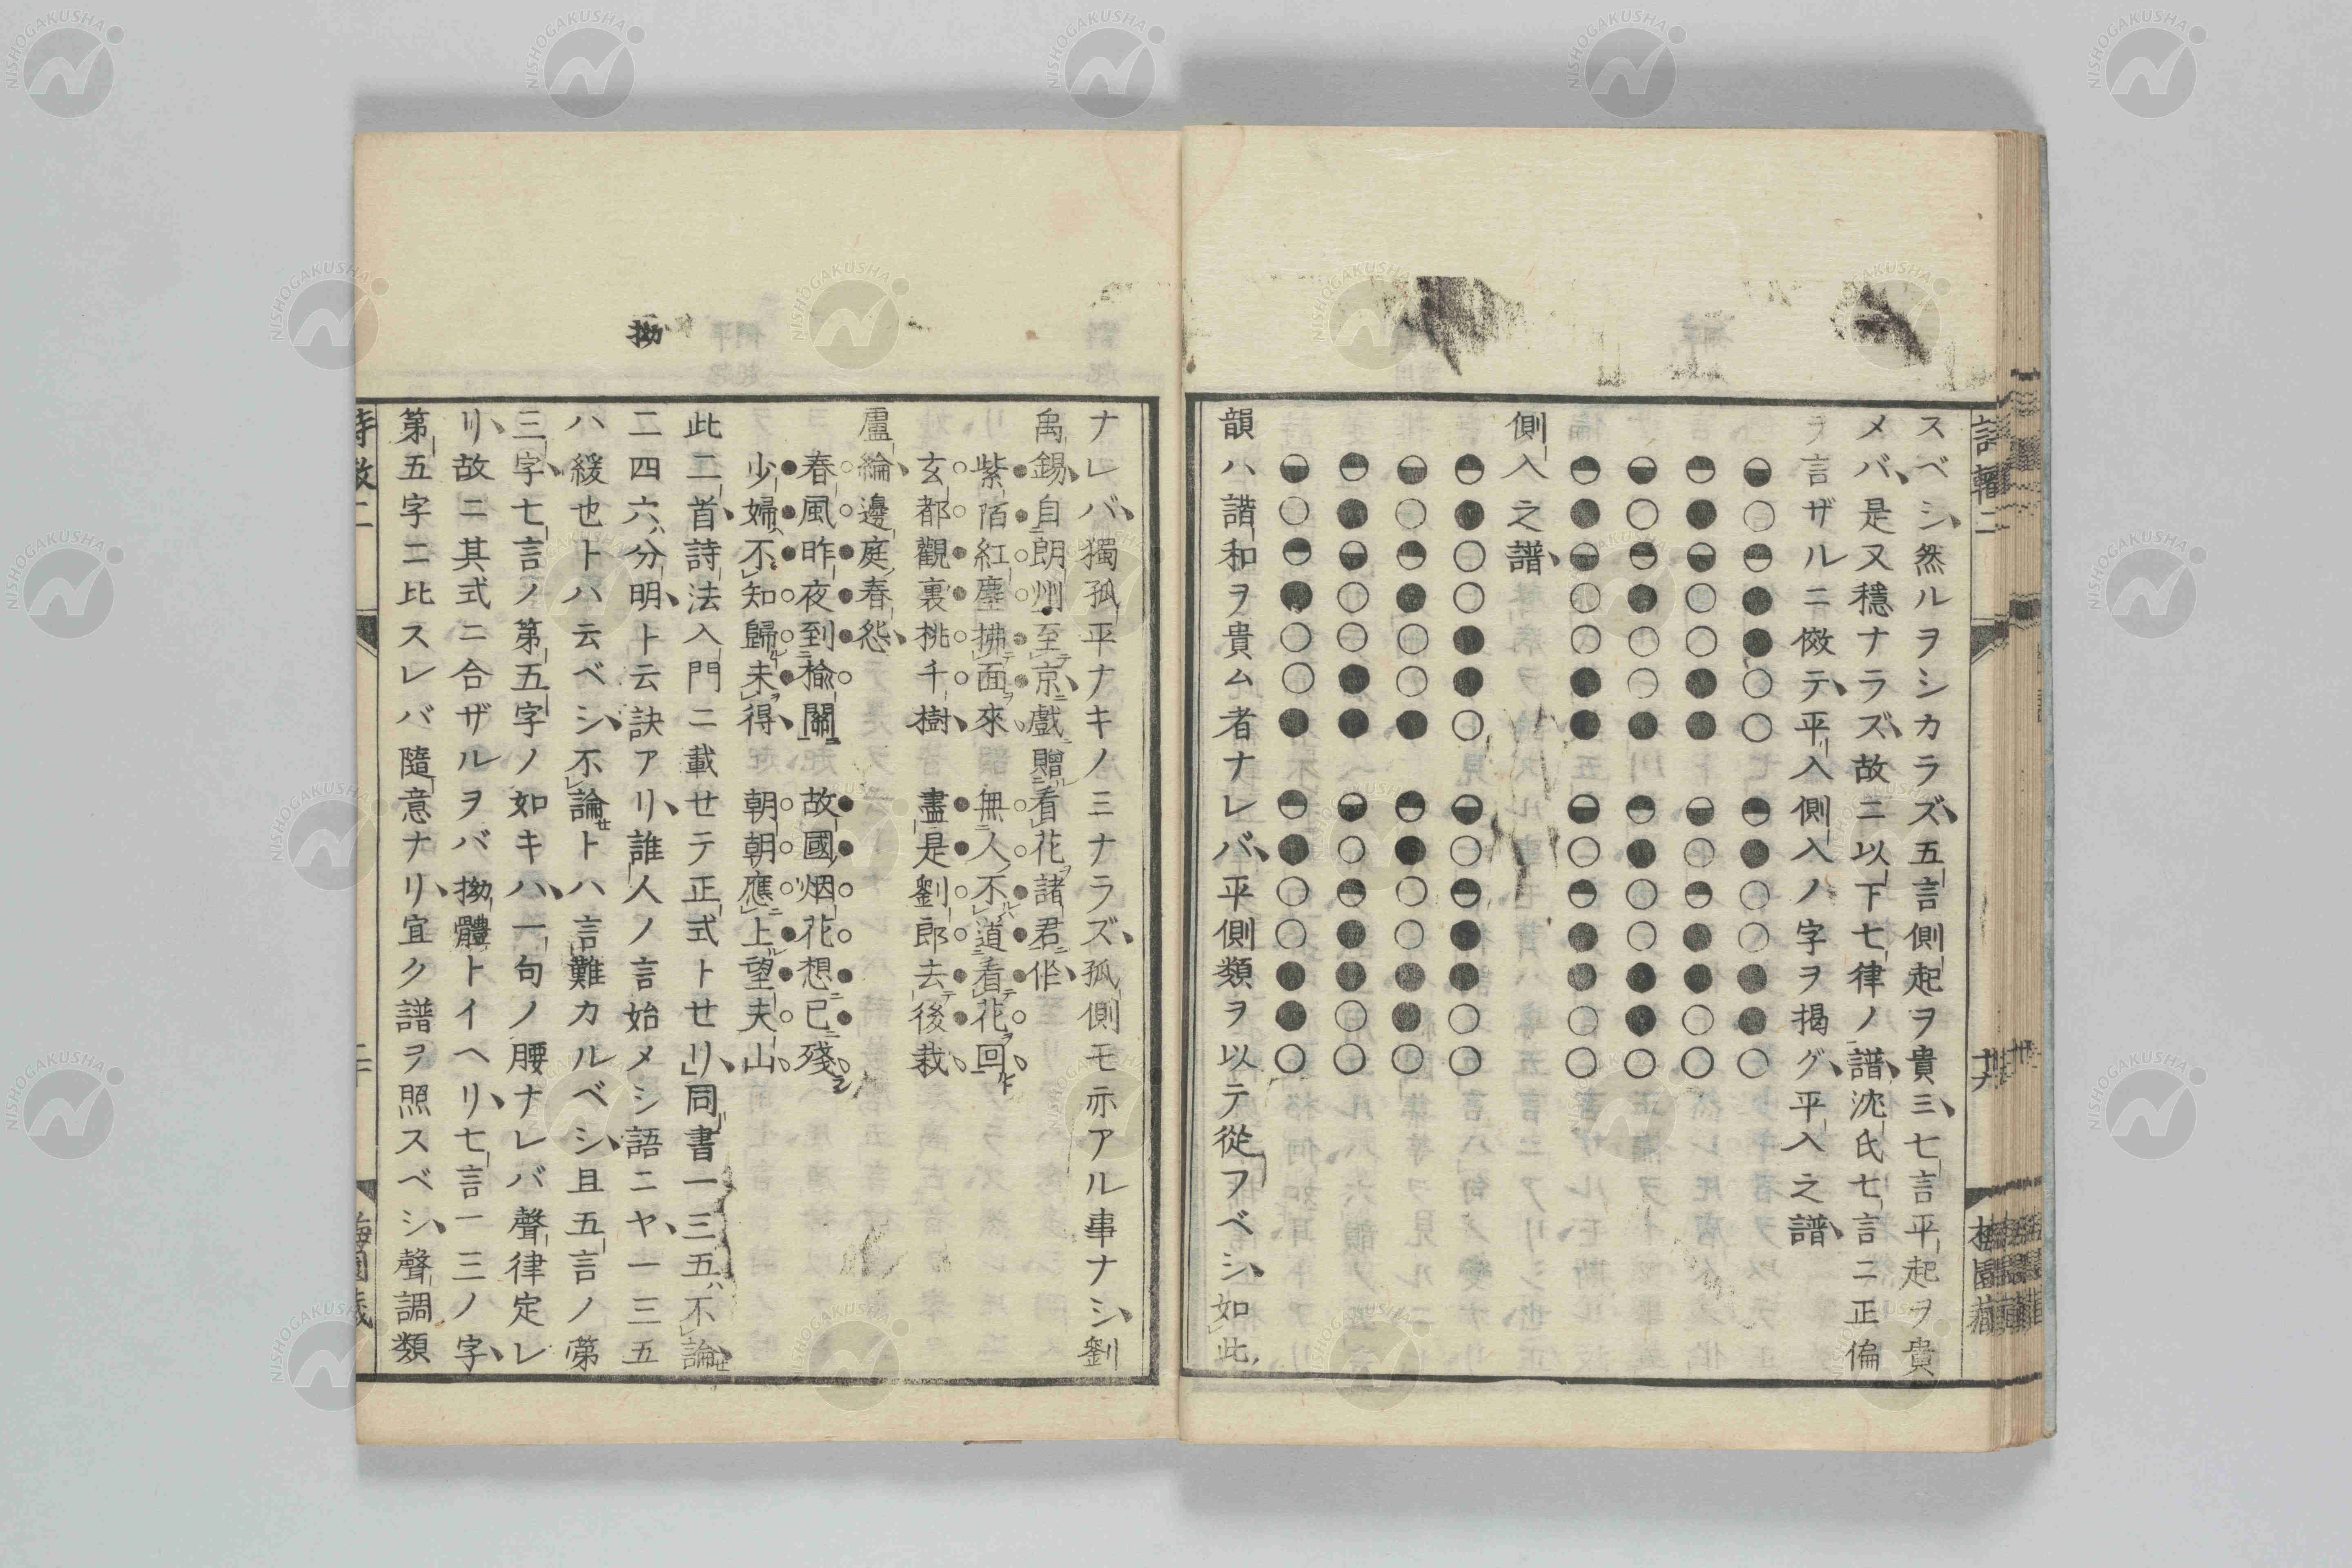 スベシ、然ルヲシカラズ、五言側起ヲ貴
メバ、是又穩ナラズ、故ニ以下七律ノ譜、沈氏七言ニ正偏
ヲ言ザルニ傚テ、平入側入ノ字ヲ揭グ、平入之譜、
◒○◒●●○○ ◒●○○●●○
◒●◒○○●● ◒○◒●●○○
◒○◒●○○● ◒●○○●●○
◒●◒○○●● ◒○◒●●○○
側入之譜、
◒●○○●●○ ◒○◒●●○○
◒○◒●○○● ◒●○○●●○
◒●◒○○●● ◒○◒●●○○
◒○◒●○○● ◒●○○●●○
韻ハ諧和ヲ貴ム者ナレバ、平側類ヲ以テ從フベシ、如此、
ナレバ、獨孤平ナキノミナラズ、孤側モ亦アル事ナシ、劉
禹錫、自朗州至京、戲贈看花諸君作、
紫陌紅塵拂面來、無人不道看花回、
玄都觀裏桃千樹、盡是劉郎去後栽
盧綸、邊庭春怨、
春風昨夜到楡關 故國烟花想已殘、
少婦不知歸未得、朝朝應上望夫山、
此二首、詩法入門ニ載セテ正式トセリ、同書一三五不論、
二四六分明、ト云訣アリ、誰人ノ言始メシ語ニヤ、一三五
ハ緩也トハ云ベシ、不論セトハ言難カルベシ、且五言ノ第
三字、七言ノ第五字ノ如キハ、一句ノ腰ナレバ聲律定レ
リ、故ニ其式ニ合ザルヲバ拗體トイヘリ、七言一三ノ字、
第五字ニ比スレバ隨意ナリ、宜ク譜ヲ照スベシ、聲調類
拗